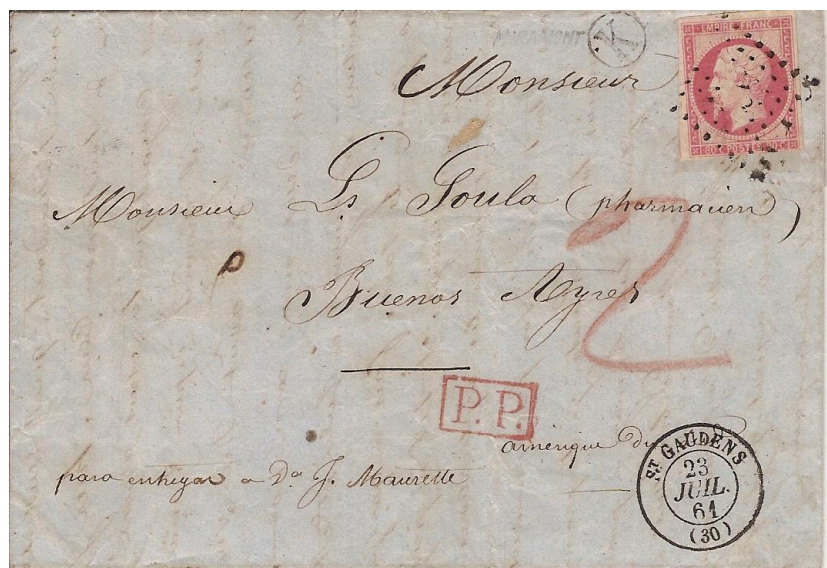 MIRAMONT
EMPIRE FRANC
Monsieur
80 C POSTES 80 C
Monsieur Ls Goula (pharmacien)
2
Buenos Ayres
P.P.
amérique du
para entregar a Da J. Maurette
ST GAUDENS
23
JUIL.
61
(30)